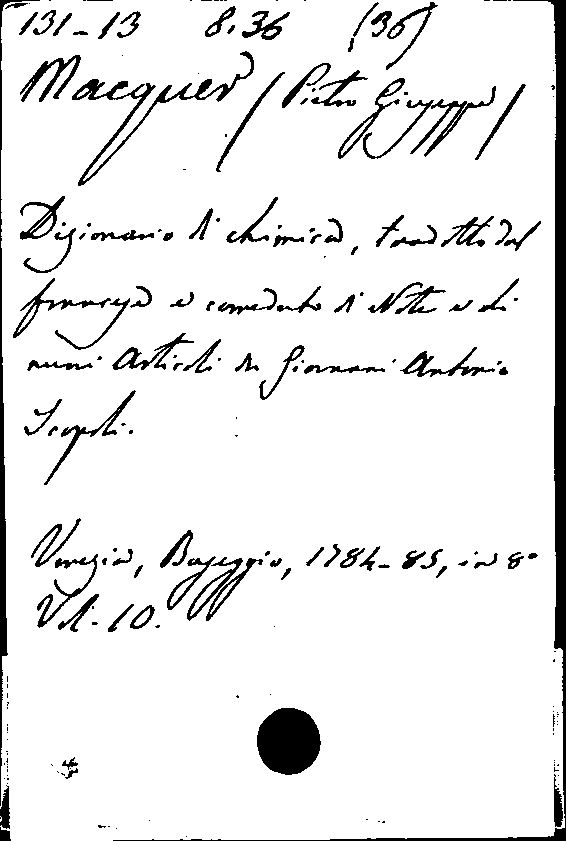 131-13 8.36 (36)
Macquer (Pietro Giuseppe)
Dizionario di chimica, tradotto dal
francese e corredato di Note e di
nuovi Articoli da Giovanni Antonio
Scopoli.
Venezia, Baseggio, 1784-85, in 8°
Vol. 10.